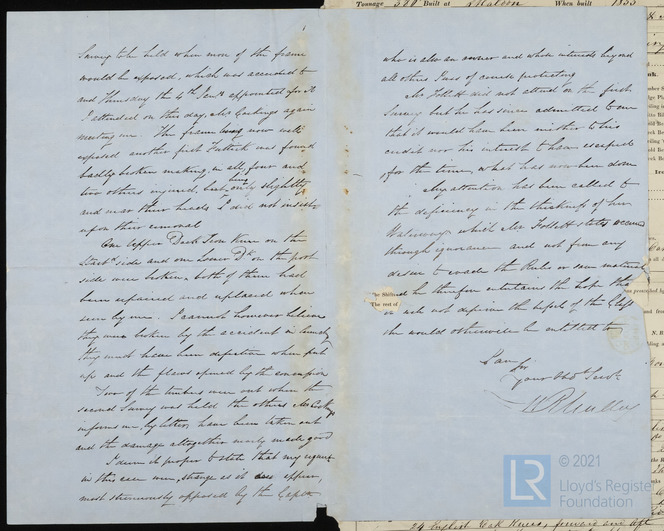 Tonnage 388 Built at When built 1855
Survey to be held when more of the frame
would be exposed, which was acceeded to
and Thursday the 4th Jany appointed for it
I attended on this day, Mr Cockings again
meeting me. The frame being now well
exposed another first Futtock was found
badly broken making in all four and
two others injured, but being only slightly
and near their heads, I did not insist
upon their removal
One Upper Deck Iron Knee on the
Starbd side and one Lower Do on the port
side were broken, both of them had
been repaired and replaced when
seen by me. I cannot however believe
they were broken by the accident in launching
they must have been defective when put
up and the flaws opened by the concussion
Two of the timbers were out when the
second Survey was held the others Mr Cockings
informs me, by letter, have been taken out
and the damage altogether nearly made good
I deem it proper to state that my
in this case were, strange as it does appear,
most strenuously opposed by the Captn
who is also an owner and whose interests beyond
all others I was of course protecting
Mr Follett did not attend on the first
Survey but he has since admitted to me
that it would have been neither to his
credit nor his interest to have escaped
for the time, what has now been done
My attention has been called to
the deficiency in the thickness of her
Waterways which Mr Follett states occurred
through ignorance and not from any
desire to evade the Rules or save material
and he therefore entertains the hope this
will not deprive the vessel of the Class
she would otherwise be entitled to
I am Sir
your Obdt Servt
The Shifts
The rest of
LR
© 2021
Lloyd's Register
Foundation
24 English Oak Knees, forward and aft